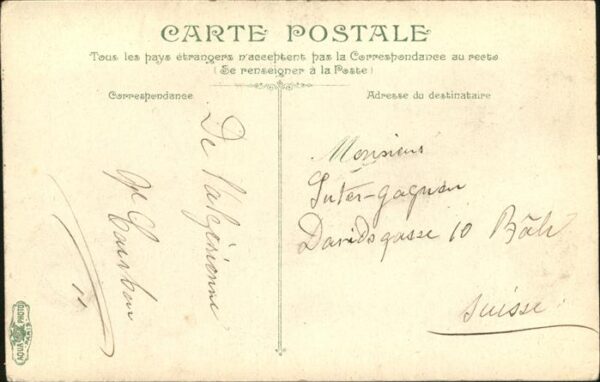 CARTE POSTALE
Tous les pays étrangers n'acceptent pas la Correspondance au recto
(Se renseigner à la Poste)
Correspondance
Adresse du destinataire
De l'algérienne
Monsieur
Suter-Gagnon
Davidsgasse 10 Bâle
Suisse
AQUA PHOTO
PARIS